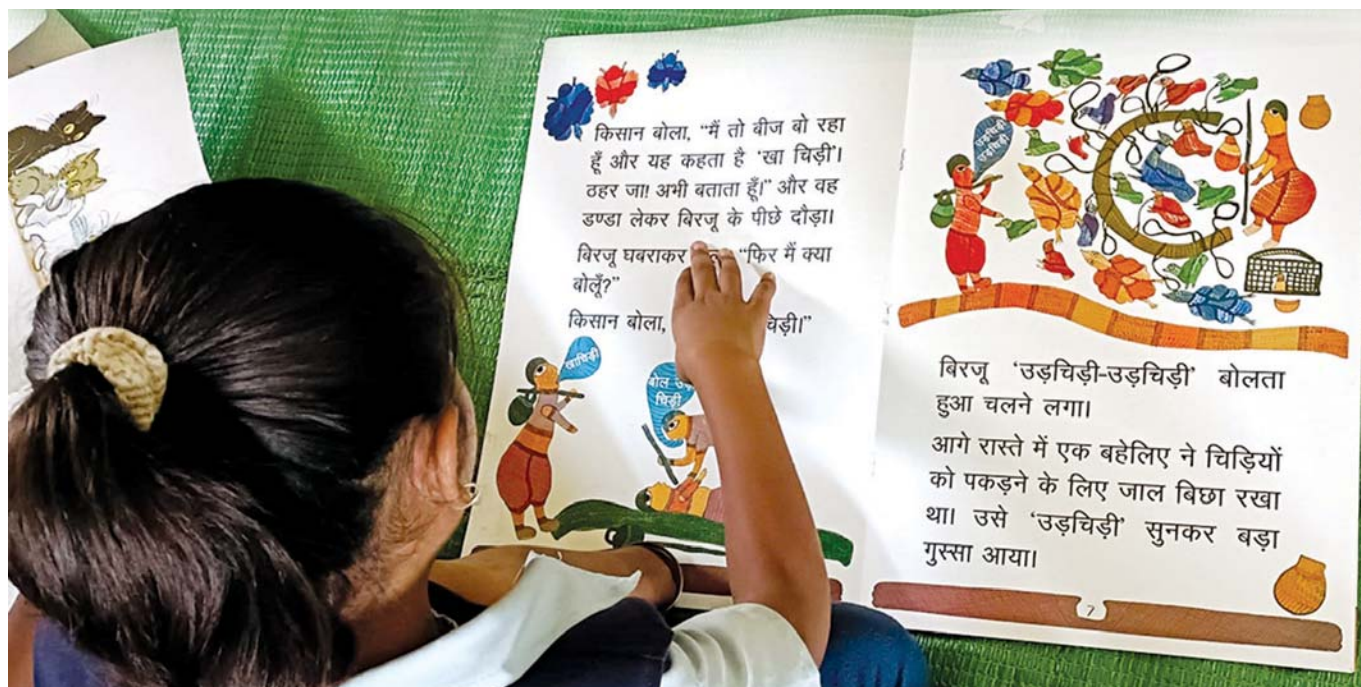 किसान बोला, “मैं तो बीज बो रहा
हूँ और यह कहता है ‘खा चिड़ी’।
ठहर जा! अभी बताता हूँ!” और वह
डण्डा लेकर बिरजू के पीछे दौड़ा।
बिरजू घबराकर “फिर मैं क्या
बोलूँ?”
किसान बोला, चिड़ी।”
खाचिड़ी
बोल
चिड़ी
उड़चिड़ी
उड़चिड़ी
बिरजू ‘उड़चिड़ी-उड़चिड़ी’ बोलता
हुआ चलने लगा।
आगे रास्ते में एक बहेलिए ने चिड़ियों
को पकड़ने के लिए जाल बिछा रखा
था। उसे ‘उड़चिड़ी’ सुनकर बड़ा
गुस्सा आया।
7